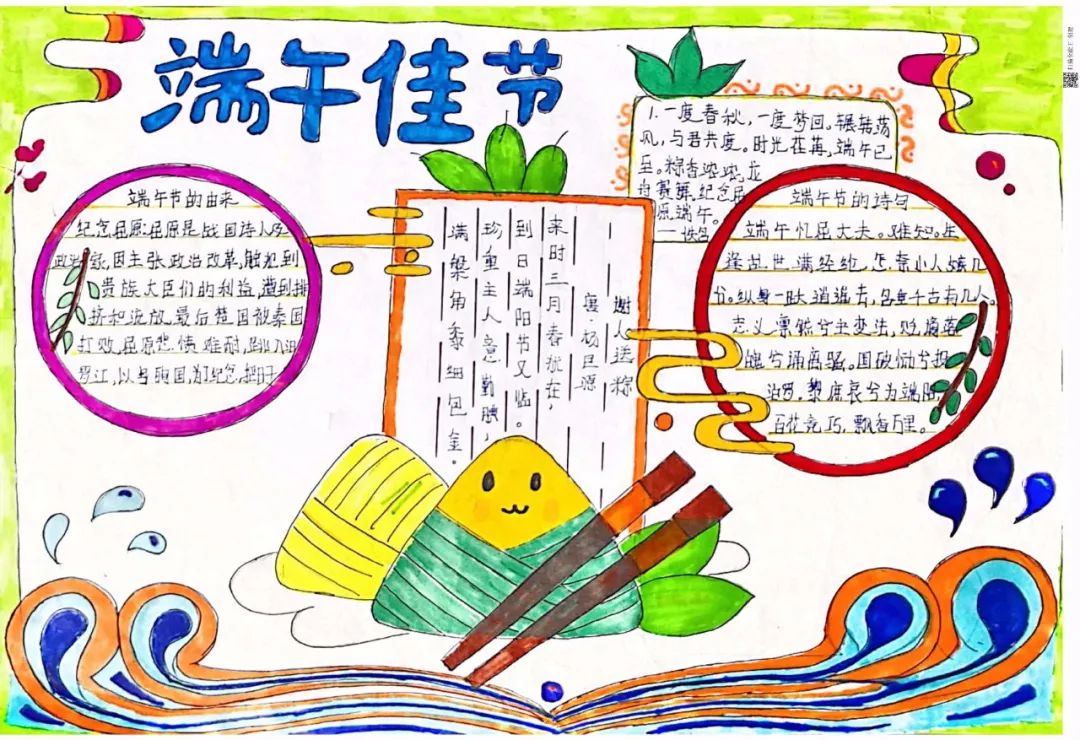 端午佳节
端午节的由来
纪念屈原:屈原是战国诗人及
政治家,因主张政治改革,触犯到
贵族大臣们的利益,遭到排
挤和流放,最后楚国被秦国
打败,屈原悲愤难耐,跳入汨
罗江,以身殉国,为了纪念,把日子
谢人送粽
襄杨巨源
来时三月春犹在,
到日端阳节又临。
珍重主人意勤腆,
满槃角黍细包金。
1.一度春秋,一度梦回。辗转荡
风,与君共度。时光荏苒,端午已
至。粽香浓浓,龙
舟赛舞,纪念屈
原,端午。
——佚名
端午节的诗句
端午忆屈大夫。难知。生
逢乱世满经纶,怎奈小人嫉几
份。纵身一跃逍遥去,名垂千古有几人。
忠义禀能兮
兮诵离骚。国破恸兮投
汨罗。黎庶哀兮为端阳
百花竞巧,飘香万里。